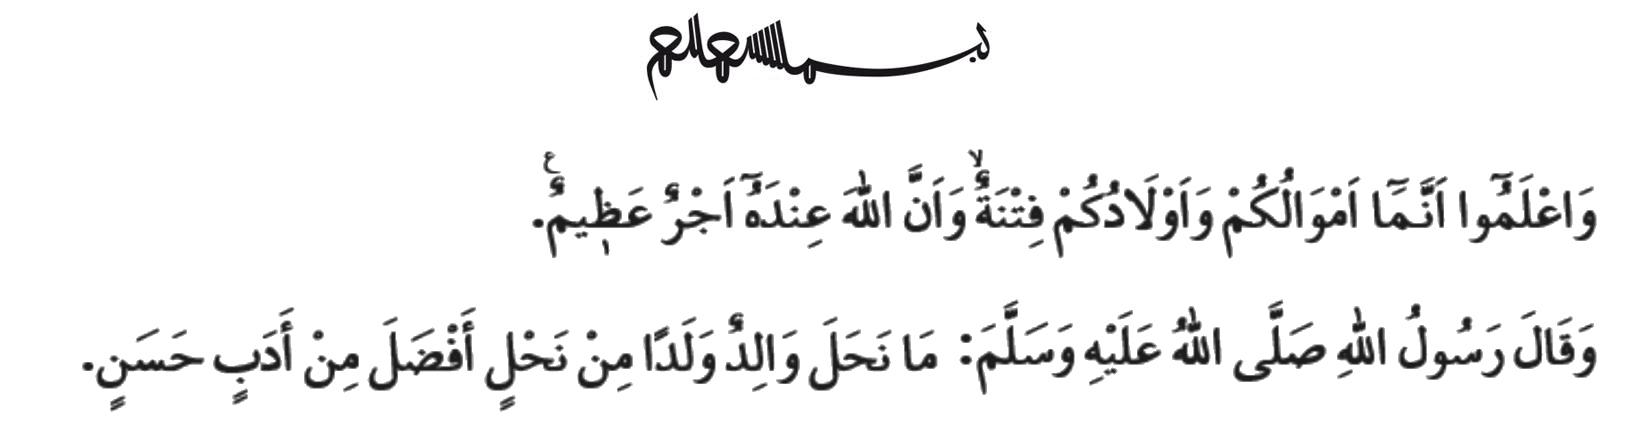 بسم الله الرحمن الرحيم
وَاعْلَمُٓوا اَنَّمَٓا اَمْوَالُكُمْ وَاَوْلَادُكُمْ فِتْنَةٌۙ وَاَنَّ اللّٰهَ عِنْدَهُٓ اَجْرٌ عَظ۪يمٌ۟.
وَقَالَ رَسُولُ اللّٰهِ صَلَّى اللّٰهُ عَلَيْهِ وَسَلَّمَ: مَا نَحَلَ وَالِدٌ وَلَدًا مِنْ نَحْلٍ أَفْضَلَ مِنْ أَدَبٍ حَسَنٍ.